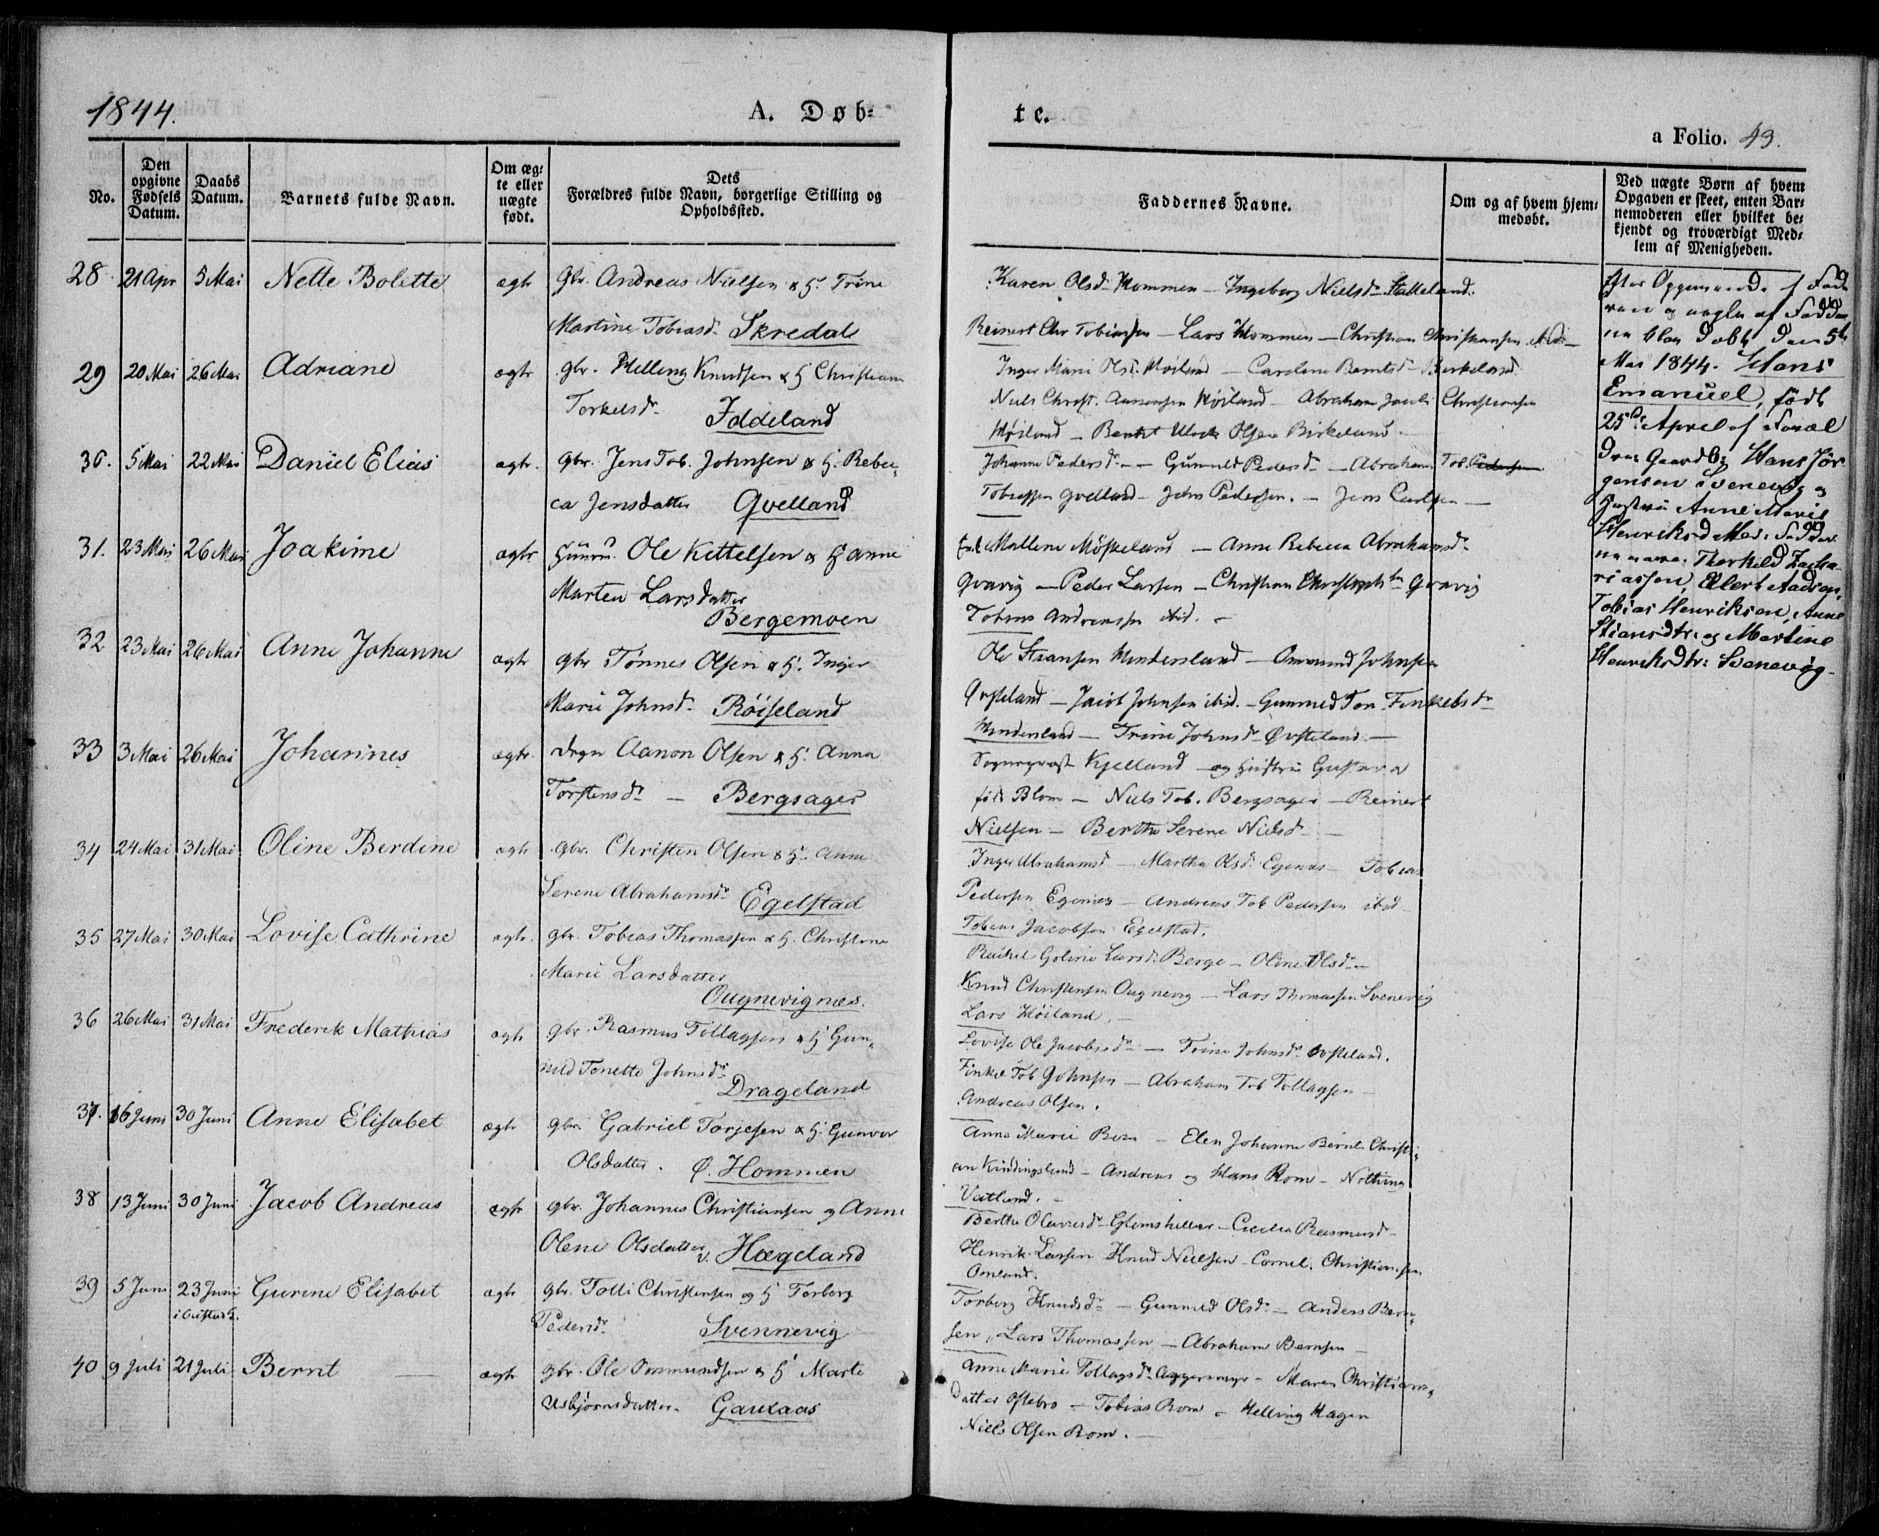 1844.
A. Døb-
te.
a Folio. 43.
No.
Den
opgivne
Fødsels
Datum.
Daabs
Datum.
Barnets fulde Navn.
Om æg-
te eller
uægte
født.
Dets
Forældres fulde Navn, borgerlige Stilling og
Opholdssted.
Faddernes Navne.
Om og af hvem hjem-
medøbt.
Ved uægte Børn af hvem
Opgaven er skeet, enten Bar-
nemoderen eller hvilket be-
kjendt og troværdigt Med-
lem af Menigheden.
28 21 Apr 5 Mai Nette Bolette ægte Gbr. Andreas Nielsen & H. Trine
Martine Tobiasd. Skredal
Karen Olsd. Hommen - Ingeborg Nielsd. Stalleland.
Reinert Chr Tobiassen - Lars Hommen - Christian Christiansen
29 20 Mai 26 Mai Adriane ægte gbr. Helling Knudsen & H. Christiane
Torkelsd. Iddeland
Inger Marie Olsd. Høiland - Caroline Berntsd. Birkeland
Niels Christ. Aanensen Høiland - Abraham Jacob Christiansen
Høiland - Olsen Birkeland -
30. 5 Mai 22 Mai Daniel Elias ægte. Gbr. Jens Tob. Johnsen & H. Rebec-
ca Jensdatter Qvelland
Johanne Pedersd. - Gunnild Pedersd. - Abraham Tob.
Tobiassen Qvelland - John Pedersen. - Jens Carlsen -
31. 23 Mai 26 Mai Joakime ægte Huusm. Ole Kittelsen & H. Anne
Marten Larsdatter
Bergemoen
Mallene Møskeland - Anne Rebecca Abrahamsd.
Gravig - Peder Larsen - Christian Gravig
Tobias Andreassen ibid. -
32 23 Mai 26 Mai Anne Johanne ægte gbr Tønnes Olsen & H. Inger
Marie Johnsd. Røiseland
Ole Mindersland - Omund Johnsen
Øvsteland - Jacob Johnsen ibid. - Gunnild Tor. Finkelsd.
Mindersland - Trine Johnsd. Øvsteland -
33 3 Mai 26 Mai Johannes ægte. Aanon Olsen & H. Anna
Torstensd. - Bergsager
Sogneprest Kjelland - og Hustru Gustava
født Blom - Niels Tob. Bergsager - Reinert
Nielsen - Berthe Serene Nielsd. -
34 24 Mai 31 Mai Oline Berdine ægte gbr. Christen Olsen & H. Anne
Serene Abrahamsd. Egelstad
Inger Abrahamsd. - Martha Olsd. Egenes - Tobias
Pedersen Egenes - Andreas Tob Pedersen ibid
Tobias Jacobsen Egelstad.
35 27 Mai 30 Mai Lovise Cathrine ægte. gbr. Tobias Thomassen & H. Christine
Marie Larsdatter
Ougnevignæs.
Rachel Goline Larsd. Berge - Oline Olsd. -
Knud Christensen Ougnevig - Lars Thomassen Svenevig
Lars Høiland. -
36 26 Mai 31 Mai Frederik Mathias ægte gbr. Rasmus Tollagsen & H. Gun-
nild Tonette Johnsd.
Drageland
Lovise Ole Jacobsd. - Trine Johnsd. Øvsteland.
Finkel Tob Johnsen - Abraham Tob Tollagsen -
Andreas Olsen.
37. 16 Juni 30 Juni Anne Elisabet ægte gbr. Gabriel Torjesen & H. Gunvor
Olsdatter. Ø. Hommen
Anne Marie Rom - Elen Johanne Bernt Christi-
an Kindingsland - Andreas og Hans Rom -
Vatland. -
38 13 Juni 30 Juni Jacob Andreas ægte gbr. Johannes Christiansen og Anne
Olene Olsdatter v. Hægeland
Berthe Olavesd. - Cecilia Rasmusd. -
Henrik Larsen Knud Nielsen - Cornel. Christiansen
Omland.
39 5 Juni 23 Juni Gurine Elisabet ægte gbr. Tolli Christensen og H. Torberg
Pedersd. Svennevig
Torberg Knudsd. - Gunnild Olsd. - Anders Bern-
sen, Lars Thomassen - Abraham Bernsen -
40 9 Juli 21 Juli Bernt - ægte gbr. Ole Ommundsen & H. Marte
Asbjørnsdatter. Gaukaas
Anne Marie Tollagsd. - Maren Christians-
datter Østebro - Tobias Rom - Helling Hagen
Niels Olsen Rom. -
ne blev døbt den 5te
Mai 1844. Hans
Emanuel, født
25de April af Foræl-
dre: Gaardbr. Hans Jør-
gensen Svenevig og
Hustru Anne Marie
Henriksd. Fadder-
ne vare: Therkild Zacha-
riassen, Ellert Aadsen,
Tobias Henriksen, Anne
Stiansdtr: og Martine
Henriksdtr: Svenevig.